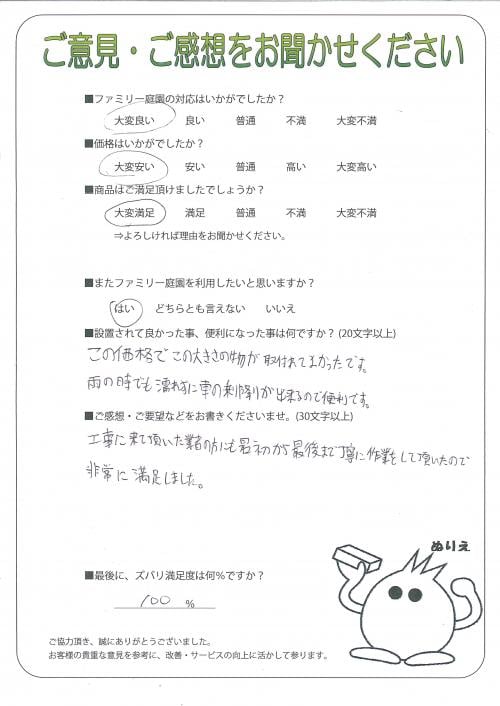 ご意見・ご感想をお聞かせください
■ファミリー庭園の対応はいかがでしたか?
大変良い 良い 普通 不満 大変不満
■価格はいかがでしたか?
大変安い 安い 普通 高い 大変高い
■商品はご満足頂けましたでしょうか?
大変満足 満足 普通 不満 大変不満
⇒よろしければ理由をお聞かせください。
■またファミリー庭園を利用したいと思いますか?
はい どちらとも言えない いいえ
■設置されて良かった事、便利になった事は何ですか? (20文字以上)
この価格でこの大きさの物が取付れてよかったです。
雨の時でも濡れずに車の乗り降りが出来るので便利です。
■ご感想・ご要望などをお書きくださいませ。(30文字以上)
工事に来て頂いた業者の方にも最初から最後まで丁寧に作業をして頂いたので
非常に満足しました。
ぬりえ
■最後に、ズバリ満足度は何%ですか?
100 %
ご協力頂き、誠にありがとうございました。
お客様の貴重な意見を参考に、改善・サービスの向上に活かして参ります。